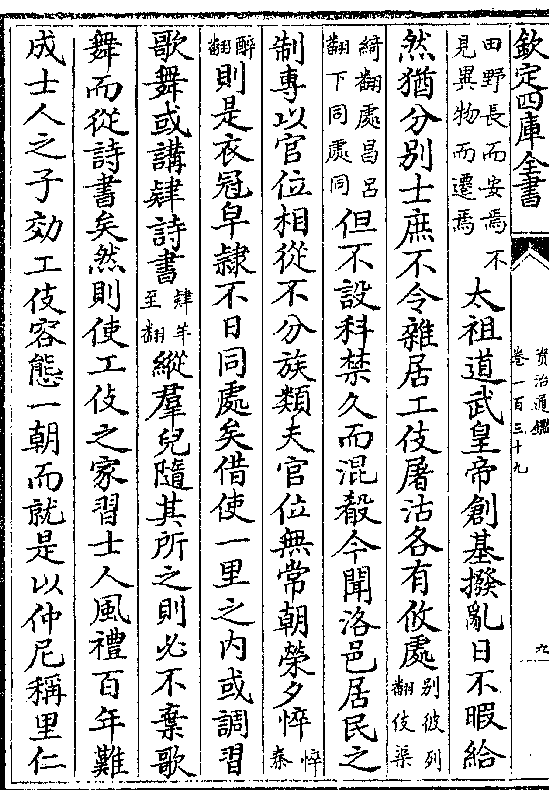 欽定四庫全書
資治通鑑
卷一百三十九
九
田野長而安焉不見異物而遷焉太祖道武皇帝創基撥亂日不暇給
然猶分别士庶不令雜居工伎屠沽各有攸處别彼列翻伎渠
綺翻處昌呂翻下同處同但不設科禁久而混殽今聞洛邑居民之
制專以官位相從不分族類夫官位無常朝榮夕悴悴秦
醉翻則是衣冠皁隸不日同處矣借使一里之内或調習
歌舞或講肄詩書肄羊至翻縱羣兒隨其所之則必不棄歌
舞而從詩書矣然則使工伎之家習士人風禮百年難
成士人之子効工伎容態一朝而就是以仲尼稱里仁